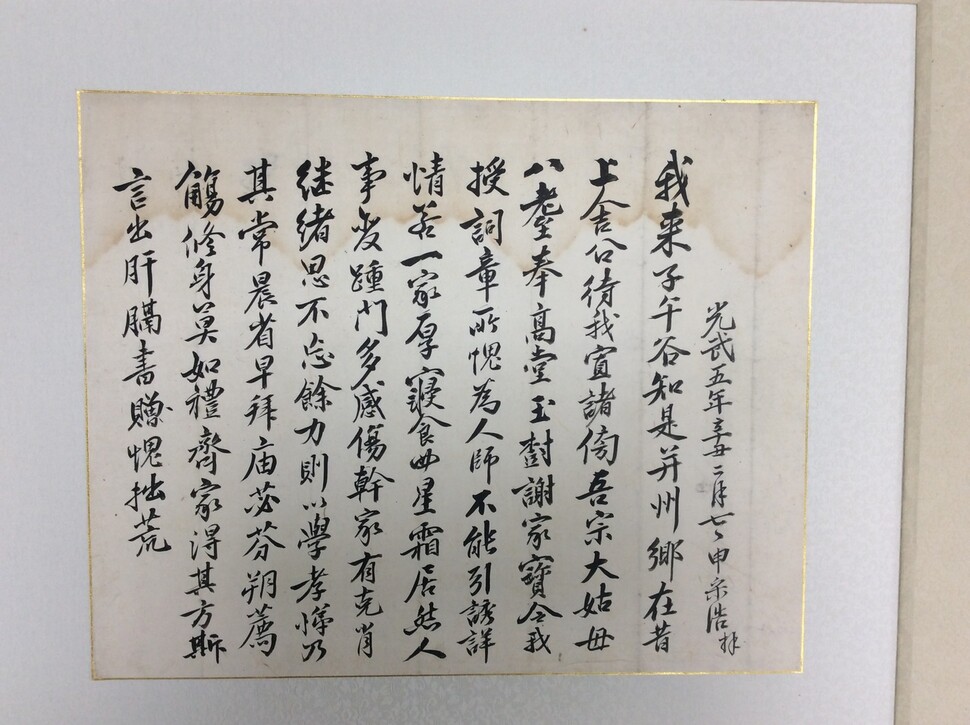 光武五年辛丑二月七日申宗浩拜
我来子午谷知是并州鄉在昔
上舍公待我宣諸傍吾宗大姑母
八耋奉高堂玉樹謝家寶令我
授詞章所愧為人師不能引誘詳
情若一家厚寢食四星霜居然人
事變踵門多感傷幹家有克肖
继緒思不忘餘力則以學孝悌乃
其常晨省早拜庙苾芬朔薦
觴修身莫如禮齊家得其方斯
言出肝膈書贈愧拙荒